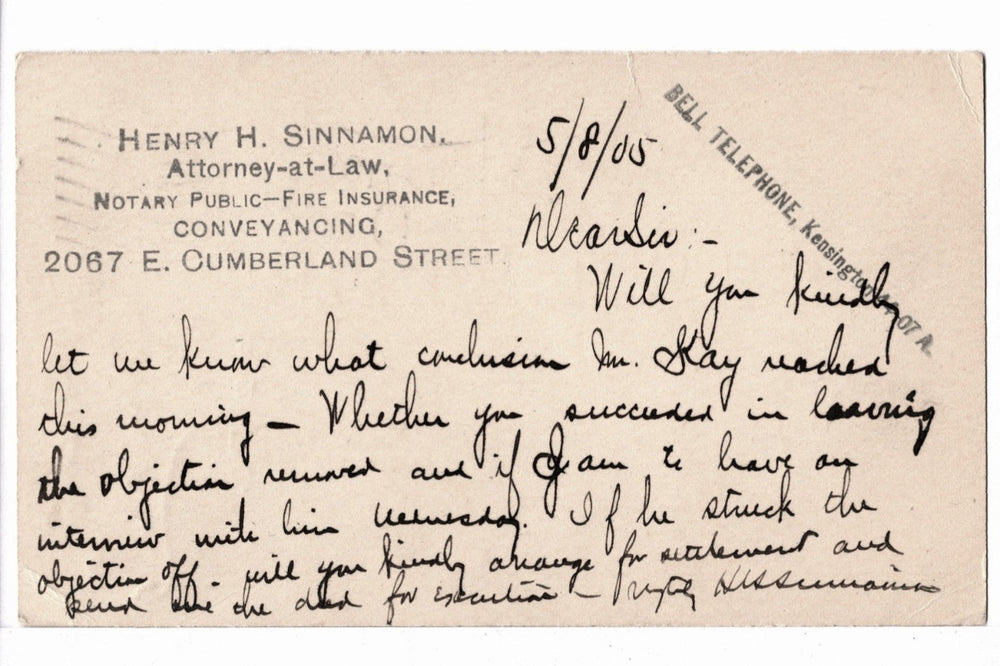 HENRY H. SINNAMON,
Attorney-at-Law,
NOTARY PUBLIC—FIRE INSURANCE,
CONVEYANCING,
2067 E. CUMBERLAND STREET.
BELL TELEPHONE, Kensington 07 A.
5/8/05
Dear Sir:-
Will you kindly
let me know what conclusion Mr. Kay reached
this morning — Whether you succeeded in
the objection removed and if I am to have an
interview with him Wednesday. If he struck the
objection off - will you kindly arrange for settlement and
send me the deed for execution — HHSinnamon